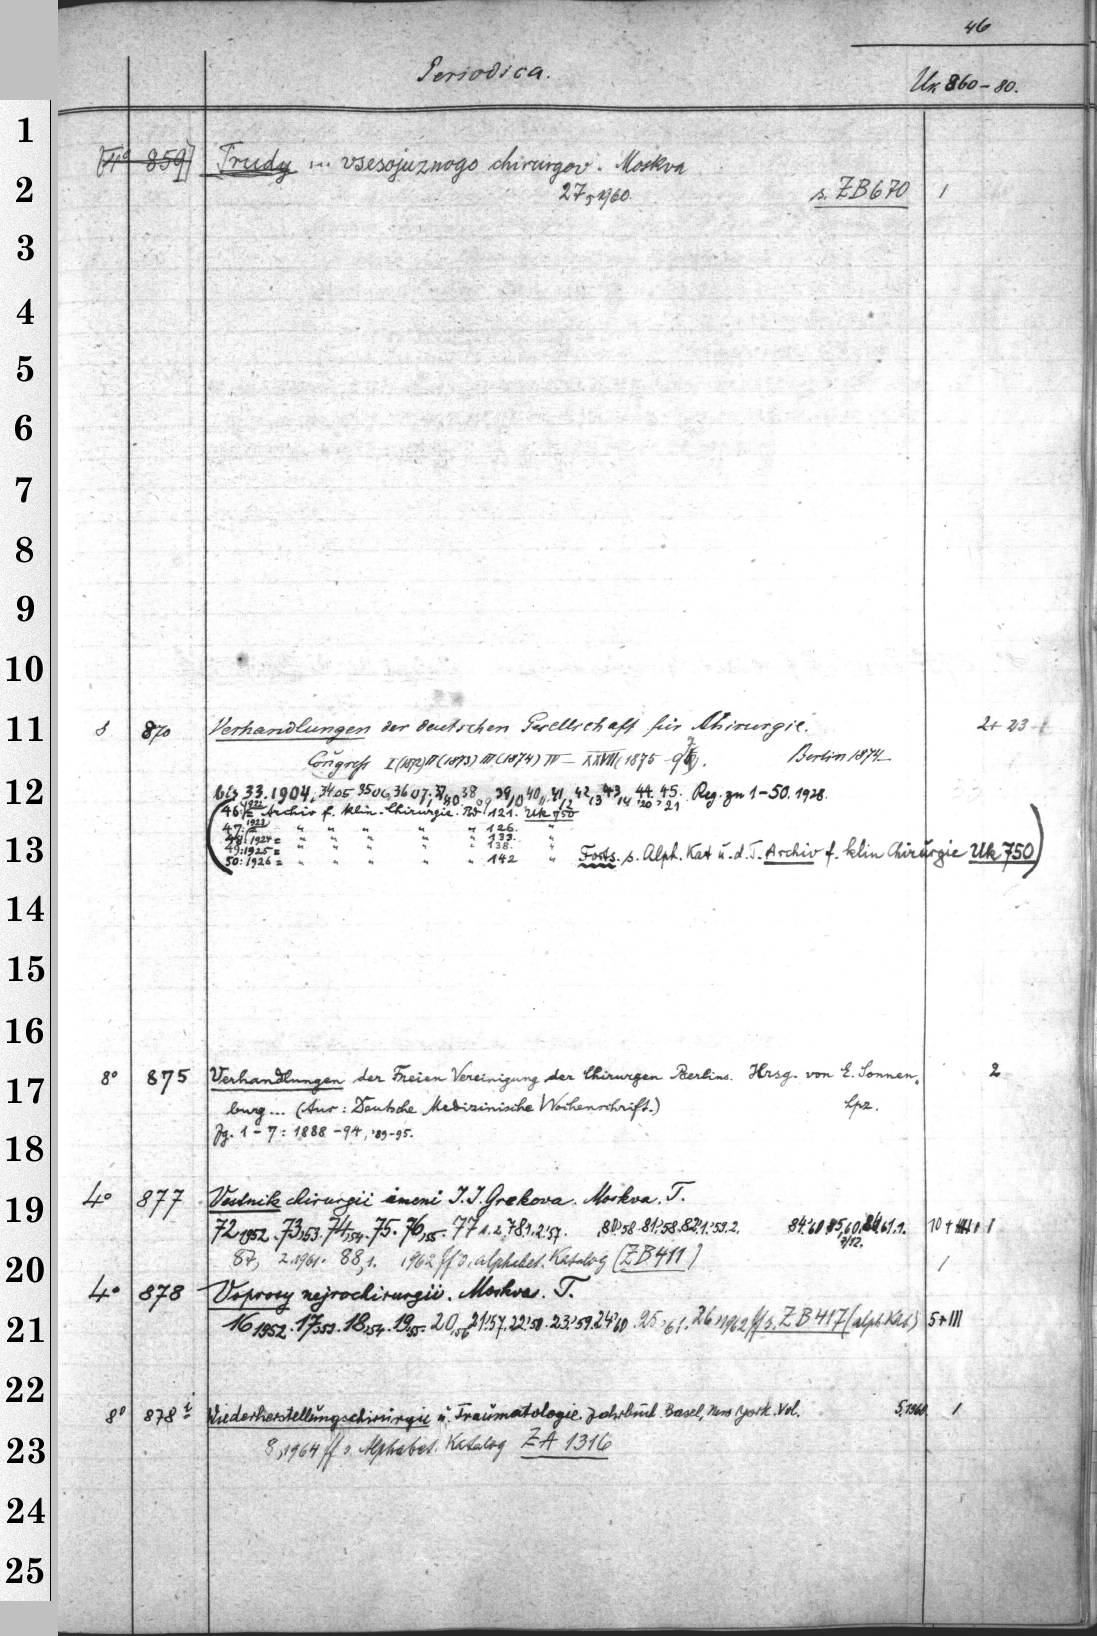 46
Periodica.
Uk 860-80.
1
[4° 859] Trudy ... vsesojuznogo chirurgov. Moskva
2
27,1960. s. ZB670 1
3
4
5
6
7
8
9
10
11
8 870 Verhandlungen der deutschen Gesellschaft für Chirurgie. 2+23
Congress I(1872) II(1873) III(1874) IV - XXVII(1875 - Berlin 1874
12
bis 33.1904, 34 05 35 06, 36 07, 37, 38 39, 40, 41, 42, 43, 44. 45. Reg. zu 1-50. 1928.
46: 1922 = Archiv f. klin. Chirurgie. Bd 121. Uk 750
47: 1923 = " " " " " 126. "
48: 1924 = " " " " " 133. "
13
49: 1925 = " " " " " 138. "
50: 1926 = " " " " " 142 " Forts. s. Alph. Kat u. d. T. Archiv f. klin Chirurgie Uk 750
14
15
16
17
8° 875 Verhandlungen der Freien Vereinigung der Chirurgen Berlins. Hrsg. von E. Sonnen- 2
burg... (Aus: Deutsche Medizinische Wochenschrift.) Lpz.
18
Jg. 1-7: 1888-94, '89-95.
19
4° 877 Vestnik chirurgii imeni I.I. Grekova. Moskva. T.
72 1952. 73,53. 74,54. 75. 76,55. 77 1.2. 78 1.2.'57. 80'58. 81'58. 82,1.'59.2. 84'60 85,60. 86 61.1.
20
87, 2.1961. 88,1. 1962 ff s. alphabet. Katalog [ZB411] 1
4° 878 Voprosy nejrochirurgii. Moskva. T.
21
16 1952. 17,53. 18,54. 19,55. 20,56 21'57. 22'58. 23'59. 24'60. 25,61. 26,1962 ff s. ZB417 (alph. Kat) 5+III
22
8° 878 i Wiederherstellungschirurgie u. Traumatologie. Jahrbuch. Basel, New York. Vol. 5,1960. 1
23
8,1964 ff s. Alphabet. Katalog ZA 1316
24
25